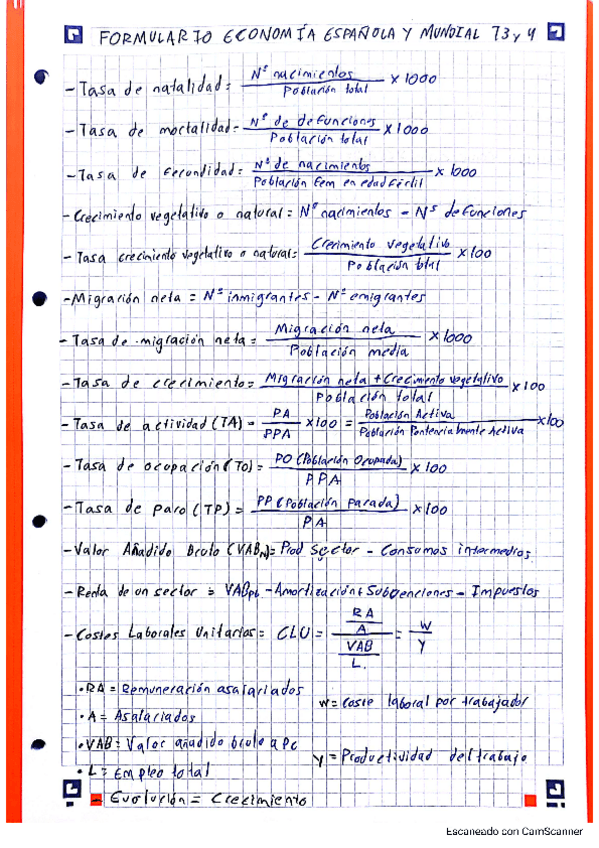 FORMULARIO ECONOMÍA ESPAÑOLA Y MUNDIAL T3 y 4
- Tasa de natalidad = Nº nacimientos / Población total x 1000
- Tasa de mortalidad = Nº de defunciones / Población total x 1000
- Tasa de fecundidad = Nº de nacimientos / Población fem en edad fértil x 1000
- Crecimiento vegetativo o natural = Nº nacimientos - Nº defunciones
- Tasa crecimiento vegetativo o natural = Crecimiento vegetativo / Población total x 100
- Migración neta = Nº inmigrantes - Nº emigrantes
- Tasa de migración neta = Migración neta / Población media x 1000
- Tasa de crecimiento = Migración neta + Crecimiento vegetativo / Población total x 100
- Tasa de actividad (TA) = PA / PPA x 100 = Población Activa / Población Potencialmente Activa x 100
- Tasa de ocupación (TO) = PO (Población Ocupada) / PPA x 100
- Tasa de paro (TP) = PP (Población Parada) / PA x 100
- Valor Añadido Bruto (VAB) = Prod Sector - Consumos intermedios
- Renta de un sector = VAB - Amortización + Subvenciones - Impuestos
- Costes Laborales Unitarios = CLU = RA / A / VAB / L. = W / Y
• RA = Remuneración asalariados
W = Coste laboral por trabajador
• A = Asalariados
• VAB = Valor añadido bruto a Pc
Y = Productividad del trabajo
• L = Empleo total
- Evolución = Crecimiento
Escaneado con CamScanner